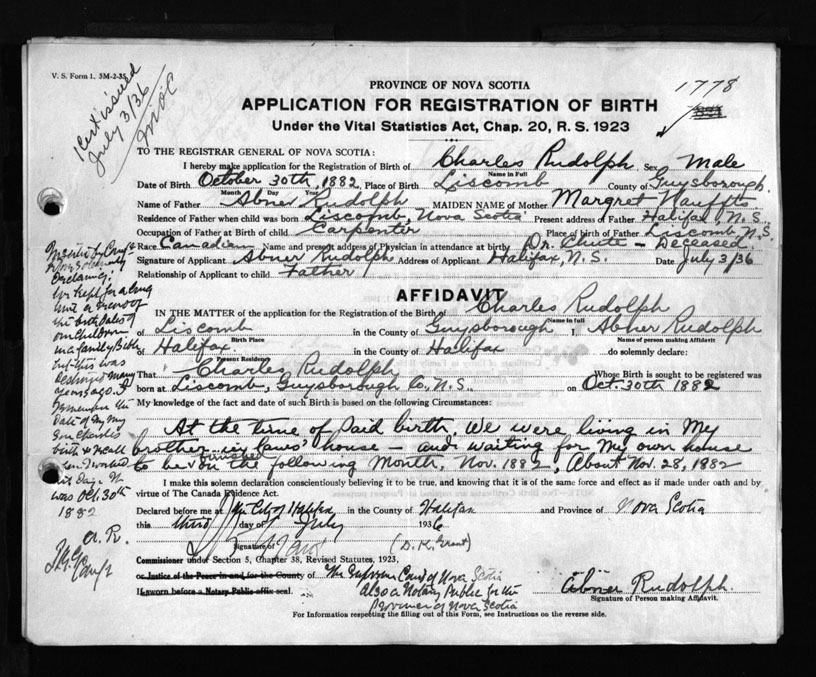 V. S. Form 1, 3M-2-35
Cert issued
July 3/36
1778
PROVINCE OF NOVA SCOTIA
APPLICATION FOR REGISTRATION OF BIRTH
Under the Vital Statistics Act, Chap. 20, R. S. 1923
TO THE REGISTRAR GENERAL OF NOVA SCOTIA:
I hereby make application for the Registration of Birth of Charles Rudolph Sex Male
Name in Full
Date of Birth October 30th 1882, Place of Birth Liscomb County of Guysborough.
Month Day Year
Name of Father Abner Rudolph MAIDEN NAME of Mother Margret Hauffts
Residence of Father when child was born Liscomb, Nova Scotia Present address of Father Halifax, N. S.
Occupation of Father at Birth of child Carpenter Place of birth of Father Liscomb, N.S.
Race Canadian Name and present address of Physician in attendance at birth Dr. Chute - Deceased.
Signature of Applicant Abner Rudolph Address of Applicant Halifax, N. S. Date July 3/36
Relationship of Applicant to child Father
AFFIDAVIT
IN THE MATTER of the application for the Registration of the Birth of Charles Rudolph
Name in full
of Liscomb in the County of Guysborough I, Abner Rudolph
Birth Place Name of person making Affidavit
of Halifax in the County of Halifax do solemnly declare:
Present Residence
That Charles Rudolph Whose Birth is sought to be registered was
born at Liscomb, Guysborough Co. N.S. on Oct. 30th 1882
My knowledge of the fact and date of such Birth is based on the following Circumstances:
At the time of said birth, We were living in My
brother-in-laws' house - and waiting for My own house
to be finished on the following Month, Nov. 1882, About Nov. 28, 1882
I make this solemn declaration conscientiously believing it to be true, and knowing that it is of the same force and effect as if made under oath and by
virtue of The Canada Evidence Act.
Declared before me at City of Halifax in the County of Halifax and Province of Nova Scotia
this third day of July 1936
Signature of (D. K. Grant)
Commissioner under Section 5, Chapter 38, Revised Statutes, 1923,
or Justice of the Peace in and for the County of The Supreme Court of Nova Scotia
If sworn before a Notary Public affix seal. Also a Notary Public for the
Province of Nova Scotia
Abner Rudolph.
Signature of Person making Affidavit.
For Information respecting the filling out of this Form, see Instructions on the reverse side.
We kept for a long
time a record of
the birth dates of
our children
in a family Bible
but this was
destroyed many
years ago. I
remember the
date of my
son Charles
birth
was Oct 30th
1882
A. R.